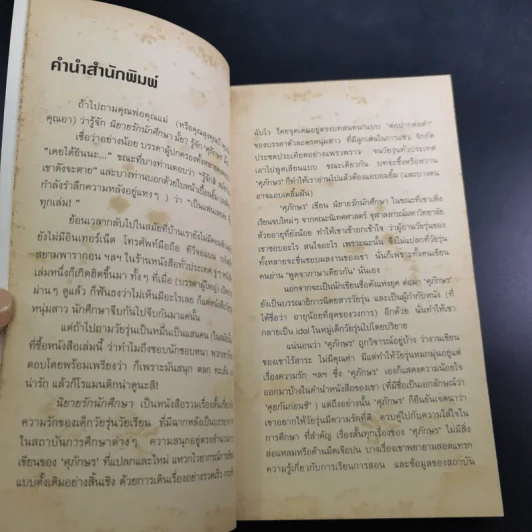 คำนำสำนักพิมพ์
ถ้าไปถามคุณพ่อคุณแม่ (หรือคุณลุงคุณป้า
คุณอา) ว่ารู้จัก นิยายรักนักศึกษา มั้ย? รู้จัก 'ศุภักษร'
เชื่อว่าอย่างน้อย บรรดาผู้ปกครองทั้งหลาย
"เคยได้ยินนะ..." ขณะที่บางท่านตอบว่า "รู้จักสิ
เขาดังจะตาย" และบางท่านบอกด้วยใบหน้ายิ้มแย้ม
กำลังรำลึกความหลังอยู่แหงๆ ) ว่า "เป็นแฟน
ทุกเล่ม! "
ย้อนเวลากลับไปในสมัยที่บ้านเรายังไม่มี
ยังไม่มีอินเทอร์เน็ต โทรศัพท์มือถือ ทีวีจอแบน
สยามพารากอน ฯลฯ ในร้านหนังสือทั่วประเทศ
เล่มหนึ่งก็เกิดฮิตขึ้นมา ทั้งๆ ที่เมื่อ (บรรดาผู้ใหญ่)
ผ่านๆ ดูแล้ว ก็ฟันธงว่าไม่เห็นมีอะไรเลย ก็แค่
หนุ่มสาว นักศึกษาจีบกันไปจีบกันมาแค่นั้น
แต่ถ้าไปถามวัยรุ่นเป็นหมื่นเป็นแสนคน
ที่ซื้อหนังสือเล่มนี้ ว่าทำไมถึงชอบนักชอบหนา
ตอบโดยพร้อมเพรียงว่า ก็เพราะมันสนุก ตลก
น่ารัก แล้วก็โรแมนติกน่าดูนะสิ!
นิยายรักนักศึกษา เป็นหนังสือรวมเรื่องสั้น
ความรักของเด็กวัยรุ่นวัยเรียน ที่มีฉากหลังเป็น
ในสถาบันการศึกษาต่างๆ ความสนุกอยู่ตรง
เขียนของ 'ศุภักษร' ที่แปลกและใหม่ แหวกไวยากรณ์
แบบดั้งเดิมอย่างสิ้นเชิง ด้วยการเดินเรื่องอย่างรวดเร็ว
ฉับไว โดยจุดเด่นอยู่ตรงบทสนทนาแบบ "ต่อปากต่อคำ"
ของบรรดาตัวละครหนุ่มสาว ที่มีลูกเล่นในการแซว จิกกัด
ประชดประเทียดอย่างแพรวพราว จนวัยรุ่นทั่วประเทศ
เอาไปพูดเลียนแบบ ขณะเดียวกัน บทจะซึ้งหรือหวาน
'ศุภักษร' ก็ทำให้เราอ่านไปแล้วต้องแอบอมยิ้ม (และบางคน
อาจแอบเคลิ้มฝัน)
'ศุภักษร' เขียน นิยายรักนักศึกษา ในขณะที่เขาเพิ่ง
เรียนจบใหม่ๆ จากคณะนิเทศศาสตร์ จุฬาลงกรณ์มหาวิทยาลัย
ด้วยอายุที่ยังน้อย ทำให้เขาเข้าอกเข้าใจว่า ผู้อ่านวัยรุ่นของ
เขาชอบอะไร สนใจอะไร เพราะฉะนั้น จึงไม่แปลกที่วัยรุ่น
ทั้งหลายจะชื่นชอบผลงานของเขา นั่นก็เพราะทั้งคนเขียน
คนอ่าน "พูดจาภาษาเดียวกัน" นั่นเอง
นอกจากจะเป็นนักเขียนชื่อดังแห่งยุค ต่อมา 'ศุภักษร'
ยังเป็นบรรณาธิการนิตยสารวัยรุ่น และเป็นผู้กำกับหนัง (ที่
ได้ชื่อว่า อายุน้อยที่สุดของวงการ) อีกด้วย นั่นทำให้เขา
กลายเป็น idol ในหมู่เด็กวัยรุ่นไปโดยปริยาย
แน่นอนว่า 'ศุภักษร' ถูกวิจารณ์อยู่บ้าง ว่างานเขียน
ของเขาไร้สาระ ไม่มีคุณค่า มีแต่ทำให้วัยรุ่นหมกมุ่นอยู่แต่
เรื่องความรัก ฯลฯ ซึ่ง 'ศุภักษร' เองก็แสดงความน้อยใจ
ออกมาบ้างในคำนำหนังสือของเขา (ที่มีชื่อเป็นเอกลักษณ์ว่า
'คุยกันก่อนซี' ) แต่ถึงอย่างนั้น 'ศุภักษร' ก็ยืนยันเจตนาว่า
เขาอยากให้วัยรุ่นมีความรักที่ดี ควบคู่ไปกับความใส่ใจใน
การศึกษา ที่สำคัญ เรื่องสั้นทุกเรื่องของ 'ศุภักษร' ไม่มีสิ่ง
ล่อแหลมหรือด้านมืดเจือปน บางเรื่องเขาพยายามสอดแทรก
ความรู้เกี่ยวกับการเรียนการสอน และข้อมูลของสถาบัน